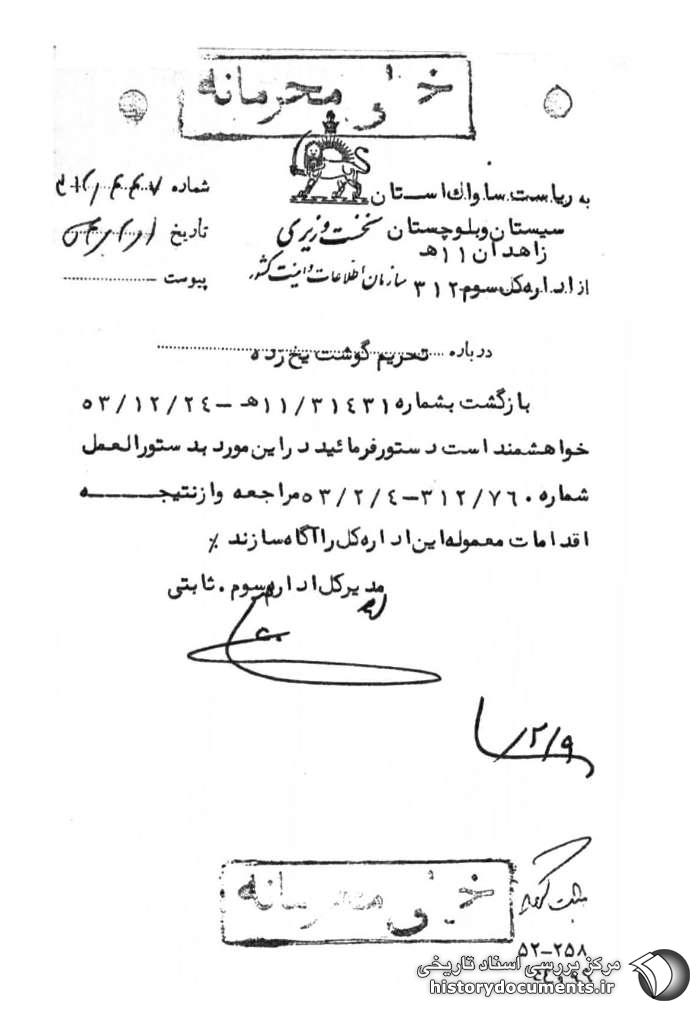 خیلی محرمانه
به ریاست ساواک استان
سیستان و بلوچستان
زاهدان ۱۱ هـ
از اداره کل سوم ۳۱۲
نخست وزیری
سازمان اطلاعات و امنیت کشور
شماره
تاریخ
پیوست
درباره تحریم گوشت یخ زده
بازگشت بشماره ۱۱/۳۱۴۳۱هـ – ۵۳/۱۲/۲۴
خواهشمند است دستور فرمائید در این مورد بدستورالعمل
شماره ۳۱۲/۷۶۰–۵۳/۲/۴ مراجعه و از نتیجه
اقدامات معموله این اداره کل را آگاه سازند ٪
مدیر کل اداره سوم . ثابتی
۲/۹
خیلی محرمانه
۵۲–۲۵۸
مرکز بررسی اسناد تاریخی
historydocuments.ir